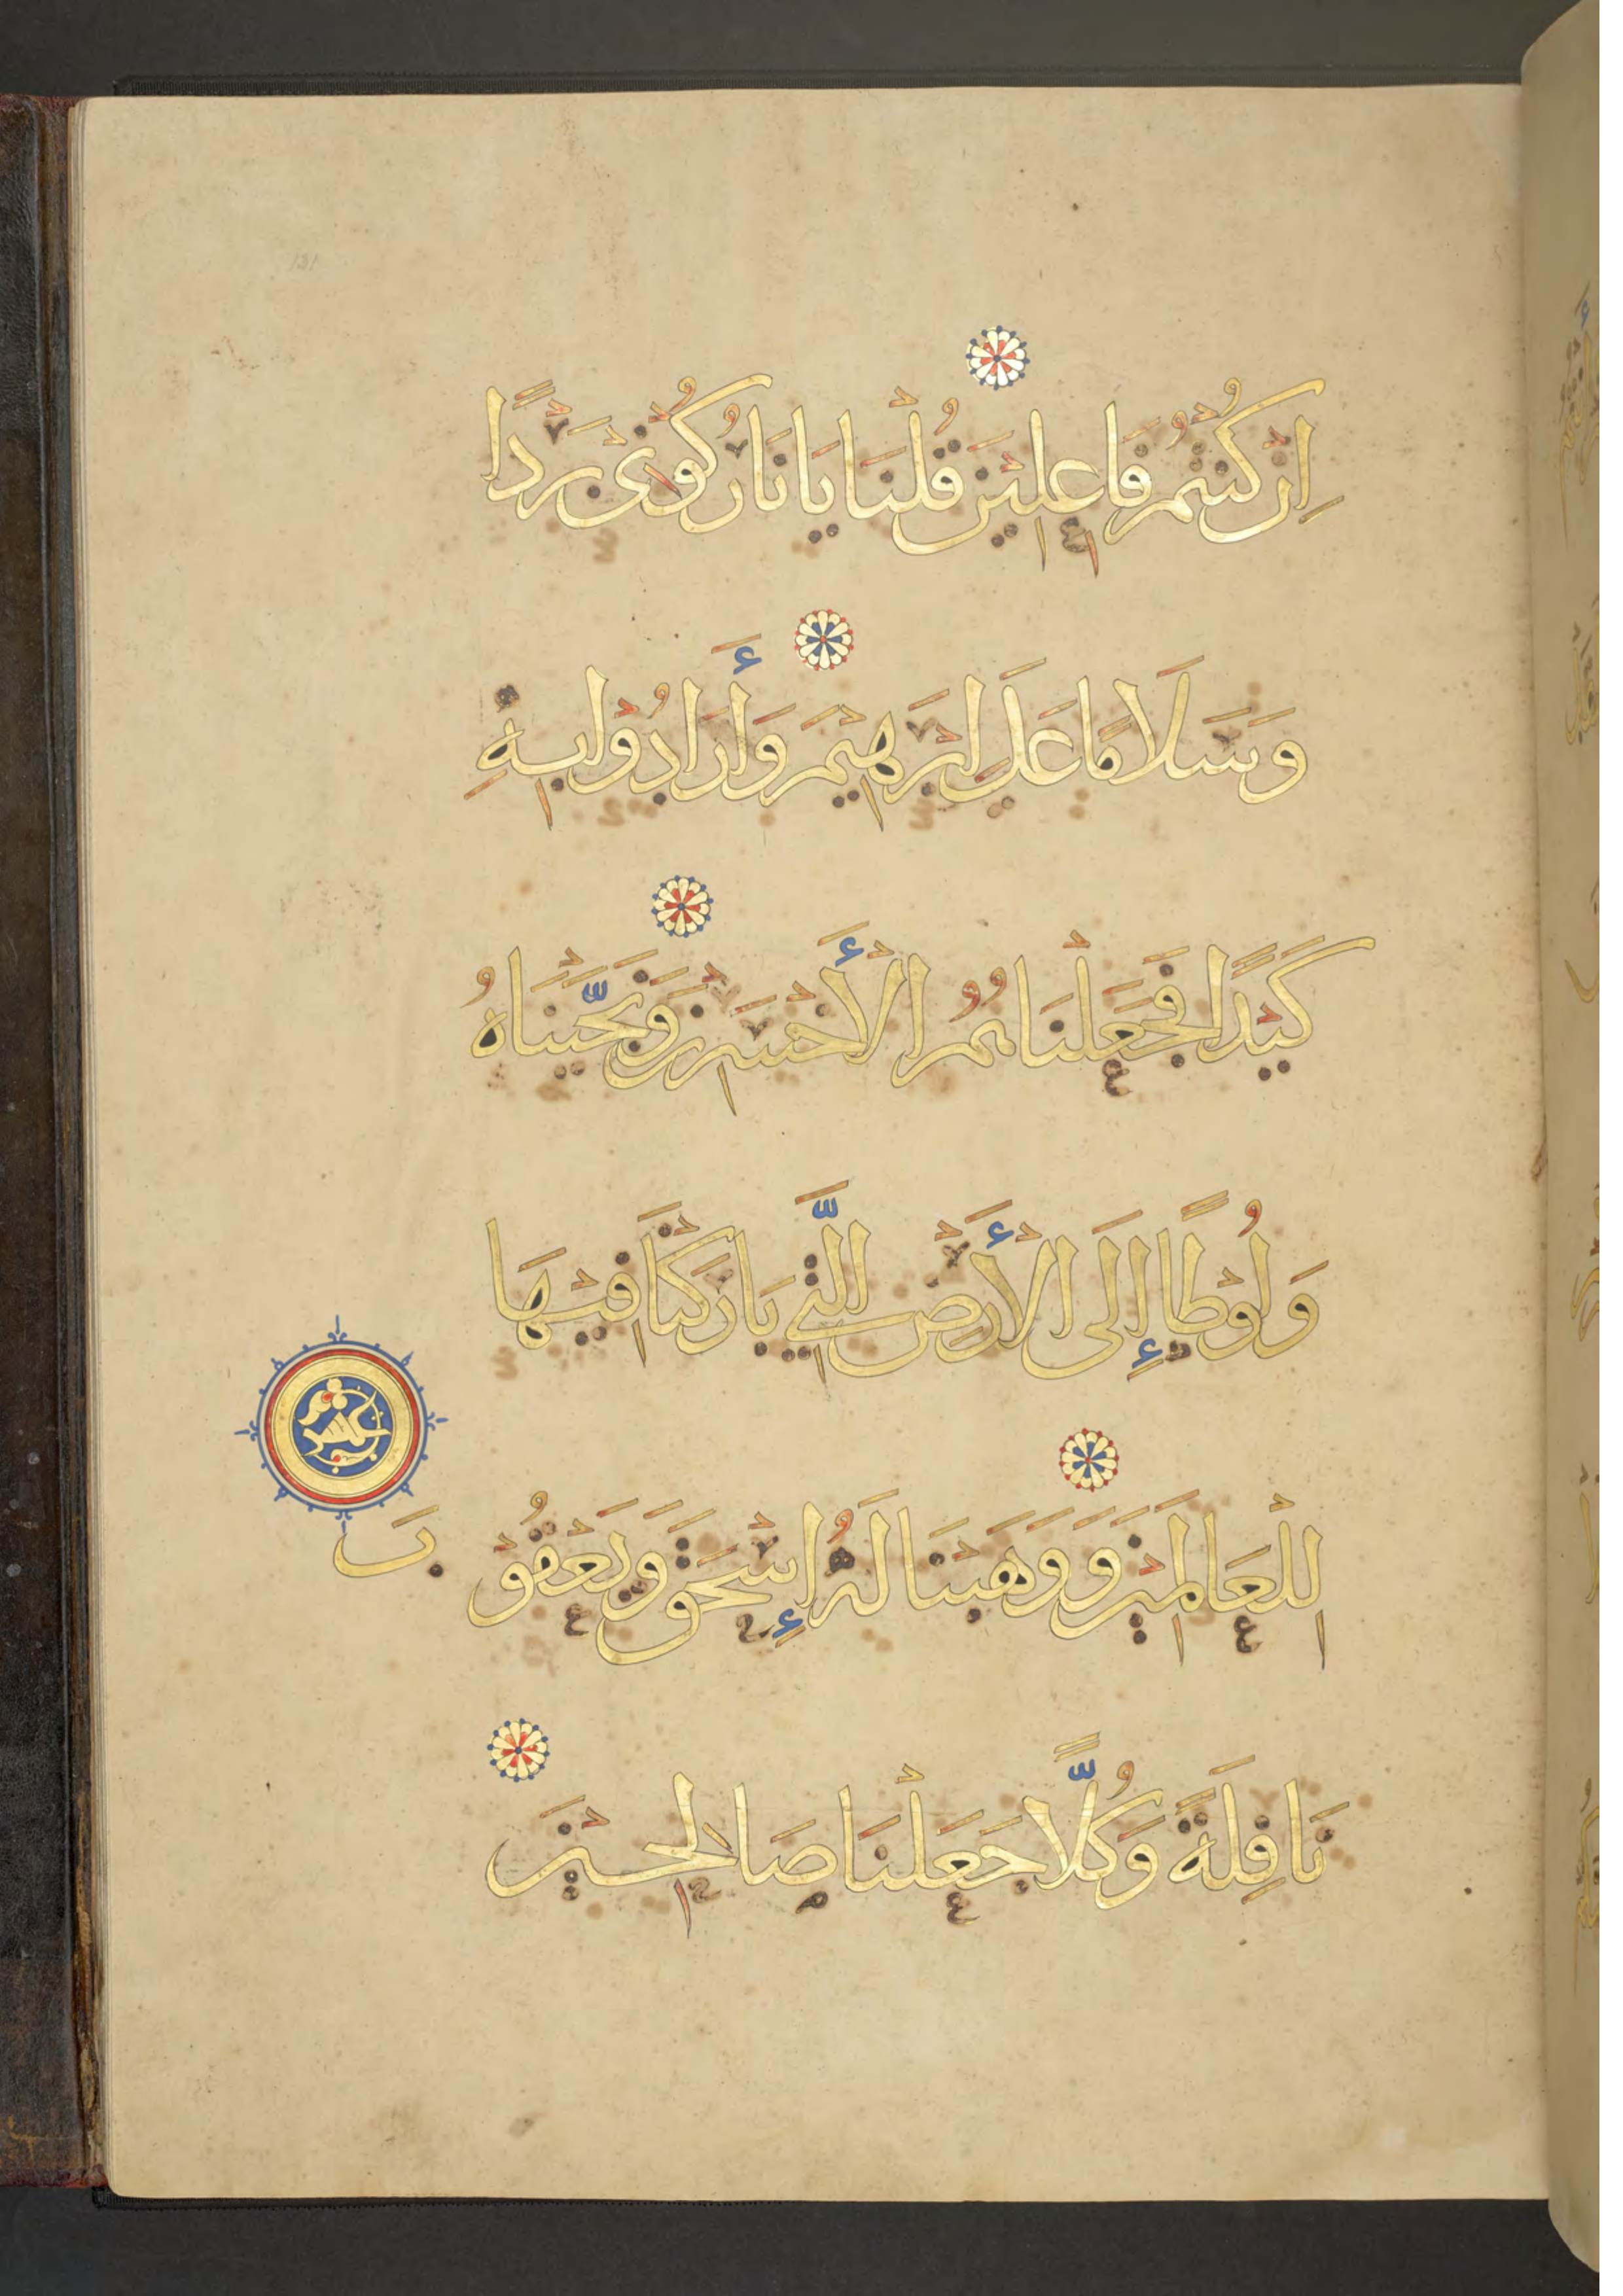 اِنْ كُنْتُمْ فَاعِلِيْنَ قُلْنَا يَا نَارُ كُوْنِىْ بَرْدًا
وَسَلَامًا عَلَى اِبْرَهِيْمَ وَأَرَادُوْا بِهِ
كَيْدًا فَجَعَلْنَاهُمُ الْأَخْسَرِيْنَ وَنَجَّيْنَاهُ
وَلُوْطًا إِلَى الْأَرْضِ الَّتِيْ بَارَكْنَا فِيْهَا
لِلْعَالَمِيْنَ وَوَهَبْنَا لَهُ إِسْحَقَ وَيَعْقُوْ
بَ
نَافِلَةً وَكُلًّا جَعَلْنَا صَالِحِيْنَ